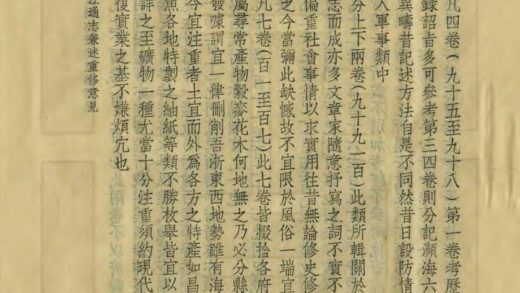 凡四卷（九十五至九十八）第一卷考歷
錄詔旨多可參考第三四卷則分記瀕海六
異疇昔記述方法自是不同然昔日設防情
入軍事類中
分上下兩卷（九十九一百）此類所輯關於
志而成亦多文章家隨意抒寫之詞不實不
偏重社會事情以求實用往昔無論修史修
之今當彌此缺憾故不宜限於風俗一端宜
凡七卷（百一至百七）此七卷皆掇拾各府
屬尋常產物穀麥花木何地無之乃必分縣
發噱詞宜一律刪削吾浙東西地勢雖有海
今宜注重者土宜而外為各方之特產如昌
魚各地特製之紬紙等類不勝枚舉皆宜以
詳之至礦物一種尤當十分注重須約現代
復實業之基不嫌煩宂也
通志兼述重修意見